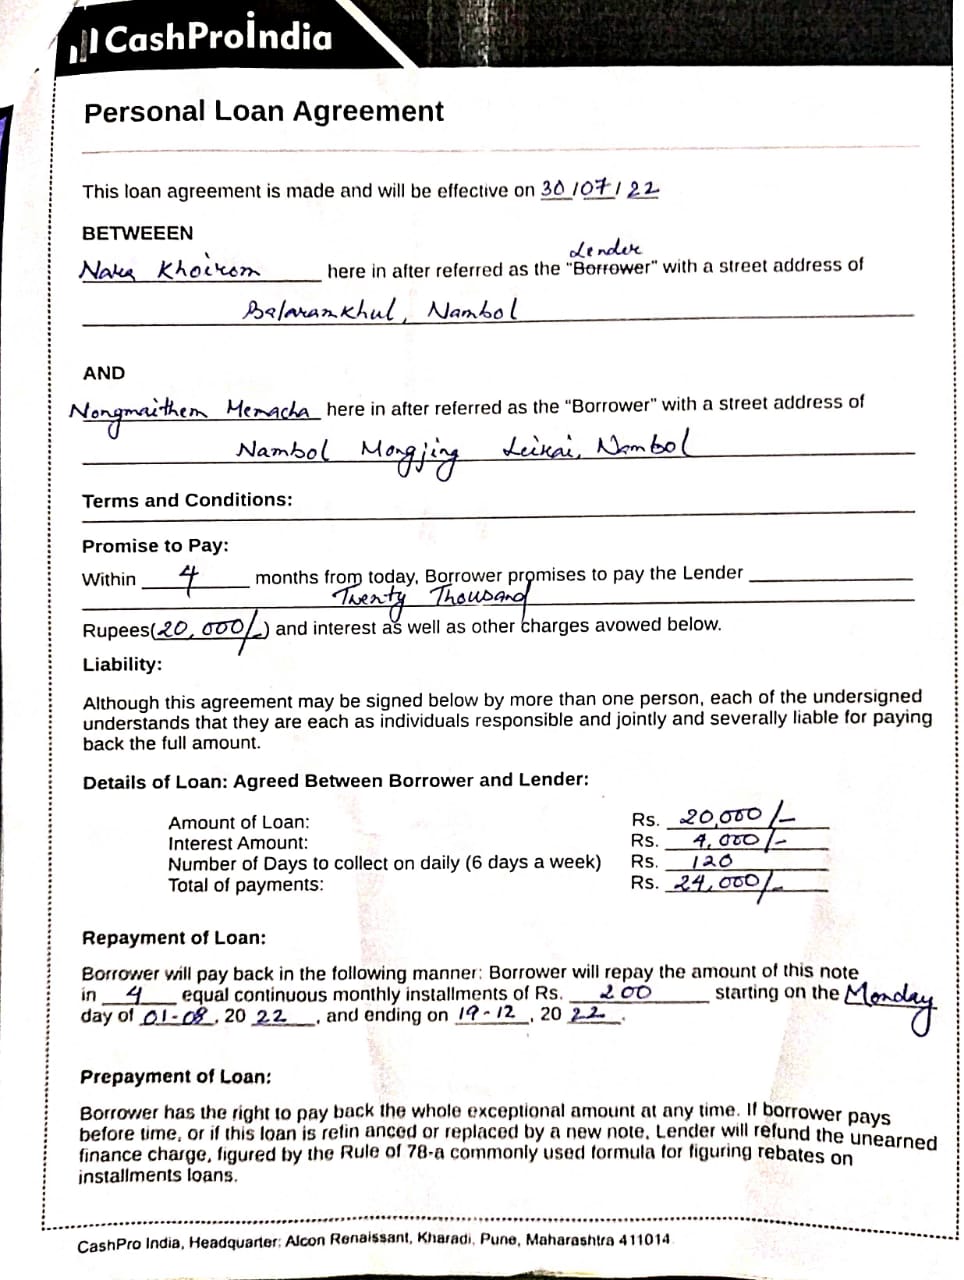 CashProIndia
Personal Loan Agreement
This loan agreement is made and will be effective on 30/07/22
BETWEEEN
Lender
Nara Khoirom here in after referred as the "Borrower" with a street address of
Balaramkhul, Nambol
AND
Nongmaithem Memacha here in after referred as the "Borrower" with a street address of
Nambol Mongjing Leikai, Nambol
Terms and Conditions:
Promise to Pay:
Within 4 months from today, Borrower promises to pay the Lender
Twenty Thousand
Rupees(20,000/-) and interest as well as other charges avowed below.
Liability:
Although this agreement may be signed below by more than one person, each of the undersigned
understands that they are each as individuals responsible and jointly and severally liable for paying
back the full amount.
Details of Loan: Agreed Between Borrower and Lender:
Amount of Loan: Rs. 20,000/-
Interest Amount: Rs. 4,000/-
Number of Days to collect on daily (6 days a week) Rs. 120
Total of payments: Rs. 24,000/-
Repayment of Loan:
Borrower will pay back in the following manner: Borrower will repay the amount of this note
in 4 equal continuous monthly installments of Rs. 200 starting on the Monday
day of 01-08, 20 22, and ending on 19-12, 20 22.
Prepayment of Loan:
Borrower has the right to pay back the whole exceptional amount at any time. If borrower pays
before time, or if this loan is refin anced or replaced by a new note, Lender will refund the unearned
finance charge, figured by the Rule of 78-a commonly used formula for figuring rebates on
installments loans.
CashPro India, Headquarter: Alcon Renaissant, Kharadi, Pune, Maharashtra 411014